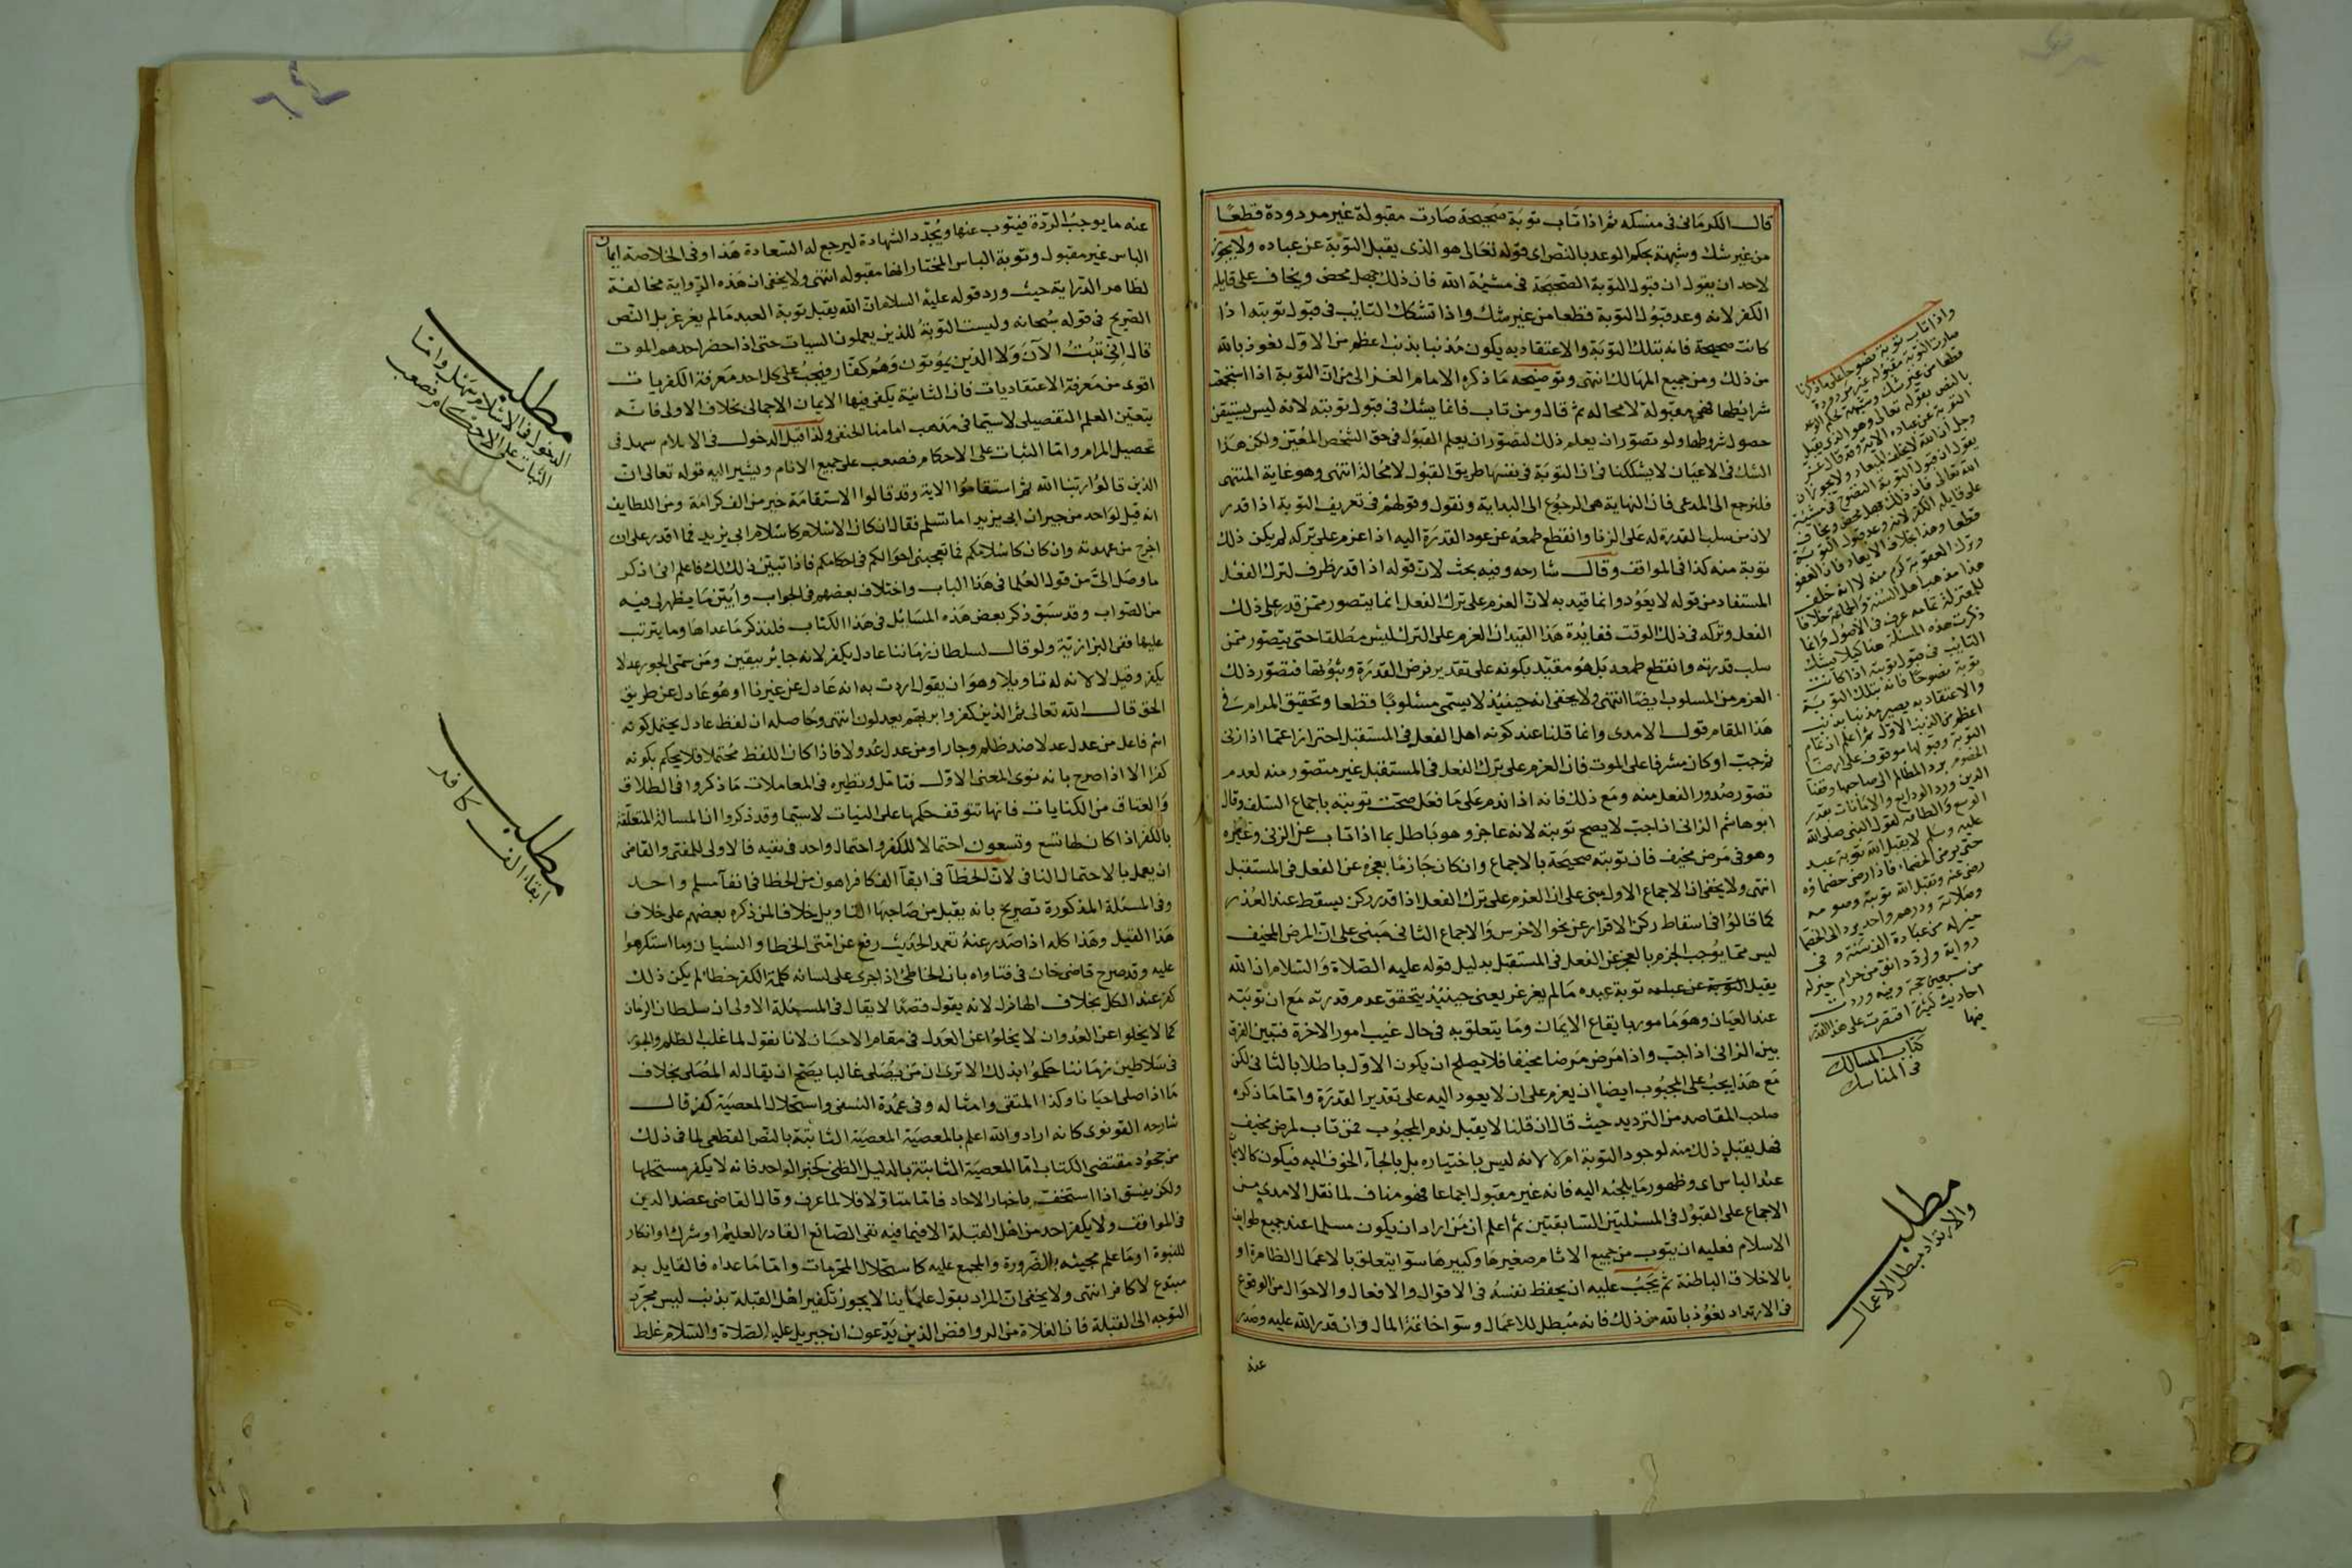 قال الكرماني في منسكه ثم اذا تاب توبة صحيحة صارت مقبولة غير مردودة قطعا
من غير شك وشبهة بحكم الوعد بالنص اى قوله تعالى هو الذى يقبل التوبة عن عباده ولا يجوز
لاحد ان يقول ان قبول التوبة الصحيحة فى مشيئة الله فان ذلك جهل محض ويخاف على قايله
الكفر لانه وعد قبول التوبة قطعا من غير شك واذا تشكك التائب فى قبول توبته اذا
كانت صحيحة فانه بتلك التوبة والاعتقاد به يكون مذنبا بذنب اعظم من الاول نعوذ بالله
من ذلك ومن جميع المهالك انتهى وتوضيحه ما ذكره الامام الغزالى من ان التوبة اذا استجمعت
شرايطها فهى مقبولة لا محالة ثم قال ومن تاب فانما يشك فى قبول توبته لانه ليس يستيقن
حصول شروطها ولو تصور ان يعلم ذلك لتصور ان يعلم القبول فى حق الشخص المعين ولكن هذا
الشك فى الاعيان لا يشككنا فى ان التوبة فى نفسها طريق القبول لا محالة انتهى وهو غاية المنتهى
فلنرجع الى المدعى فان النهاية هى الرجوع الى البداية ونقول وقولهم فى تعريف التوبة اذا قدر
لان من سلب القدرة له على الزنا وانقطع طمعه عن عود القدرة اليه اذا عزم على تركه لم يكن ذلك
توبة منه كذا فى المواقف وقال شارحه وفيه بحث لان قوله اذا قدر ظرف لترك الفعل
المستفاد من قوله لا يعود وانما قيد به لان العزم على ترك الفعل انما يتصور ممن قدر على ذلك
الفعل وتركه فى ذلك الوقت ففايدة هذا القيد ان العزم على الترك ليس مطلقا حتى يتصور ممن
سلب قدرته وانقطع طمعه بل هو مقيد بكونه على تقدير فرض القدرة وثبوتها فتصور ذلك
العزم من المسلوب ايضا انتهى ولا يخفى انه حينئذ لا يسمى مسلوبا قطعا وتحقيق المرام فى
هذا المقام قول الامدى وانما قلنا عند كونه اهل الفعل فى المستقبل احترازا عما اذا زنى
ثم جب او كان مشرفا على الموت فان العزم على ترك الفعل فى المستقبل غير متصور منه لعدم
تصور صدور الفعل منه ومع ذلك فانه اذا ندم على ما فعل صحت توبته باجماع السلف وقال
ابو هاشم الزانى اذا جب لا يصح توبته لانه عاجز وهو باطل بما اذا تاب عن الزنى وغيره
وهو فى مرض مخيف فان توبته صحيحة بالاجماع وان كان جازما بعجزه عن الفعل فى المستقبل
انتهى ولا يخفى ان الاجماع الاول مبنى على ان العزم على ترك الفعل اذا قدر ركن يسقط عند العذر
كما قالوا فى اسقاط ركن الاقرار عن نحو الاخرس والاجماع الثانى مبنى على ان المرض المخيف
ليس مما يوجب الجزم بالعجز عن الفعل فى المستقبل بدليل قوله عليه الصلاة والسلام ان الله
يقبل توبة عبده ما لم يغرغر يعنى حينئذ يتحقق عدم قدرته مع ان توبته
عند العيان وهو مامور بايقاع الايمان وما يتعلق به فى حال غيب امور الاخرة فتبين الفرق
بين الزانى اذا جب واذا مرض مرضا مخيفا فلا يصلح ان يكون الاول باطلا بالثانى لكن
مع هذا يجب على المجبوب ايضا ان يعزم على ان لا يعود اليه على تقدير القدرة واما ما ذكره
صاحب المقاصد من الترديد حيث قال ان قلنا لا يقبل ندم المجبوب فمن تاب لمرض مخيف
فهل يقبل ذلك منه لوجود التوبة ام لا لانه ليس باختياره بل بالجاء الخوف اليه فيكون كالايمان
عند الباس اى وظهور ما يلجئه اليه فانه غير مقبول اجماعا فهو مناف لما نقل الامدى من
الاجماع على القبول فى المسئلتين السابقتين ثم اعلم ان من اراد ان يكون مسلما عند جميع طوايف
الاسلام فعليه ان يتوب من جميع الاثام صغيرها وكبيرها سوآ يتعلق بالاعمال الظاهرة او
بالاخلاق الباطنة ثم يجب عليه ان يحفظ نفسه فى الاقوال والافعال والاحوال من الوقوع
فى الارتداد نعوذ بالله من ذلك فانه مبطل للاعمال وسوآ خاتمة المال وان قدر الله عليه وصدر
عنه
واذا تاب توبة نصوحا على ما ذكرنا
صارت التوبة مقبولة غير مردودة
قطعا من غير شك وشبهة بحكم الوعد
بالنص بقوله تعالى وهو الذى يقبل
التوبة عن عباده الاية وقد قال عز
وجل ان الله لا يخلف الميعاد ولا يجوز ان
يقول ان قبول التوبة النصوح فى مشيئة
الله تعالى فان ذلك جهل محض ويخاف
على قايله الكفر لانه وعد قبول التوبة
قطعا وهذا خلاف الايعاد فان العفو
وترك العقوبة كرم منه لا انه خلف
هذا مذهب اهل السنة والجماعة خلافا
للمعتزلة عامه عرف فى الاصول وانما
ذكرت هذه المسئلة هنا كيلا يشك
التائب فى قبول توبته اذا كانت
توبة نصوحا فانه بتلك التوبة
والاعتقاد به يصير مذنبا بذنب
اعظم من الذنب الاول ثم اعلم ان تمام
التوبة وقبولها موقوف على ارضاء
الخصوم برد المظالم الى صاحبها وقضآ
الدين ورد الودايع والامانات بقدر
الوسع والطاقة لقول النبى صلى الله
عليه وسلم لا يقبل الله توبة عبد
حتى يرضى الخصماء فاذا رضى خصماؤه
رضى عنه وتقبل الله توبته وصومه
وصلاته ودرهم واحد يرد الى الخصما
خير له من عبادة الف سنة وفى
رواية ولرد دانق من حرام خير له
من سبعين حجة وفيه وردت
احاديث كثيرة اقتصرت على هذا القدر
منها
كتاب المسالك
فى المناسك
مطلب
والارتداد مبطل الاعمال
عنه ما يوجب الردة فيتوب عنها ويجدد الشهادة ليرجع له السعادة هذا وفى الخلاصة ايمان
الباس غير مقبول وتوبة الباس المختار انها مقبولة انتهى ولا يخفى ان هذه الرواية مخالفة
لظاهر الدراية حيث ورد قوله عليه السلام ان الله يقبل توبة العبد ما لم يغرغر بل النص
الصريح فى قوله سبحانه وليست التوبة للذين يعملون السيات حتى اذا حضر احدهم الموت
قال انى تبت الآن ولا الذين يموتون وهم كفار ويجب على كل احد معرفة الكفريات
اقوى من معرفة الاعتقاديات فان الثانية يكفى فيها الايمان الاجمالى بخلاف الاولى فانه
يتعين العلم التفصيلى لا سيما فى مذهب امامنا الحنفى ولذا قيل الدخول فى الاسلام سهل فى
تحصيل المرام واما الثبات على الاحكام فصعب على جميع الانام ويشير اليه قوله تعالى ان
الذين قالوا ربنا الله ثم استقاموا الاية وقد قالوا الاستقامة خير من الف كرامة ومن اللطايف
انه قيل لواحد من جيران ابى يزيد اما تسلم فقال ان كان الاسلام كاسلام ابى يزيد فما اقدر على ان
اخرج من عهدته وان كان كاسلامكم فما تعجبنى احوالكم فى احكامكم فاذا تبين ذلك لك فاعلم انى اذكر
ما وصل الى من قول العلما فى هذا الباب واختلاف بعضهم فى الجواب وابين ما يظهر لى فيه
من الصواب وقد سبق ذكر بعض هذه المسائل فى هذا الكتاب فلنذكر ما عداها وما يترتب
عليها ففى البزازية ولو قال لسلطان زماننا عادل يكفر لانه جاير بيقين ومن سمى الجور عدلا
يكفر وقيل لا لانه له تاويلا وهو ان يقول اردت به انه عادل عن غيرنا او هو عادل عن طريق
الحق قال الله تعالى ثم الذين كفروا بربهم يعدلون انتهى وحاصله ان لفظ عادل يحتمل كونه
اسم فاعل من عدل عدلا ضد ظلم وجار او من عدل عدولا فاذا كان اللفظ محتملا فلا يحكم بكونه
كفرا الا اذا صرح بانه نوى المعنى الاول فتامل ونظيره فى المعاملات ما ذكروا فى الطلاق
والعتاق من الكنايات فانها تتوقف حكمها على النيات لا سيما وقد ذكروا ان المسالة المتعلقة
بالكفر اذا كان لها تسع وتسعون احتمالا للكفر واحتمال واحد فى نفيه فالاولى للمفتى والقاضى
ان يعمل بالاحتمال النافى لان الخطآ فى ابقآ الف كافر اهون من الخطا فى افنآ مسلم واحد
وفى المسئلة المذكورة تصريح بانه يقبل من صاحبها التاويل خلافا لمن ذكره بعضهم على خلاف
هذا القيل وهذا كله اذا صدر عنه تعمد الحديث رفع عن امتى الخطا والنسيان وما استكرهوا
عليه وقد صرح قاضى خان فى فتاواه بان الخاطئ اذا جرى على لسانه كلمة الكفر خطا لم يكن ذلك
كفر عند الكل بخلاف الهازل لانه يقول قصدا لا يقال فى المسئلة الاولى ان سلطان الزمان
كما لا يخلوا عن العدوان لا يخلوا عن العدل فى مقام الاحسان لانا نقول لما غلب الظلم والجور
فى سلاطين زماننا حكموا بذلك الا ترى ان من يصلى غالبا يصح ان يقال له المصلى بخلاف
ما اذا صلى احيانا وكذا المتقى وامثاله وفى عمدة النسفى واستحلال المعصية كفر قال
شارحه القونوى كانه اراد والله اعلم بالمعصية المعصية الثابتة بالنص القطعى لما فى ذلك
من جحود مقتضى الكتاب اما المعصية الثابتة بالدليل الظنى كخبر الواحد فانه لا يكفر مستحلها
ولكن يفسق اذا استخف باخبار الاحاد فاما متاولا فلا لما عرف وقال القاضى عضد الدين
فى المواقف ولا يكفر احد من اهل القبلة الا فيما فيه نفى الصانع القادر العليم او شرك او انكار
للنبوة او ما علم مجيئه بالضرورة والمجمع عليه كاستحلال المحرمات واما ما عداه فالقايل به
مبتدع لا كافر انتهى ولا يخفى ان المراد بقول علماينا لا يجوز تكفير اهل القبلة بذنب ليس مجرد
التوجه الى القبلة فان الغلاة من الروافض الذين يدعون ان جبريل عليه الصلاة والسلام غلط
مطلب
الدخول فى الاسلام سهل واما
الثبات على الاحكام فصعب
مطلب
ابقاء الف كافر